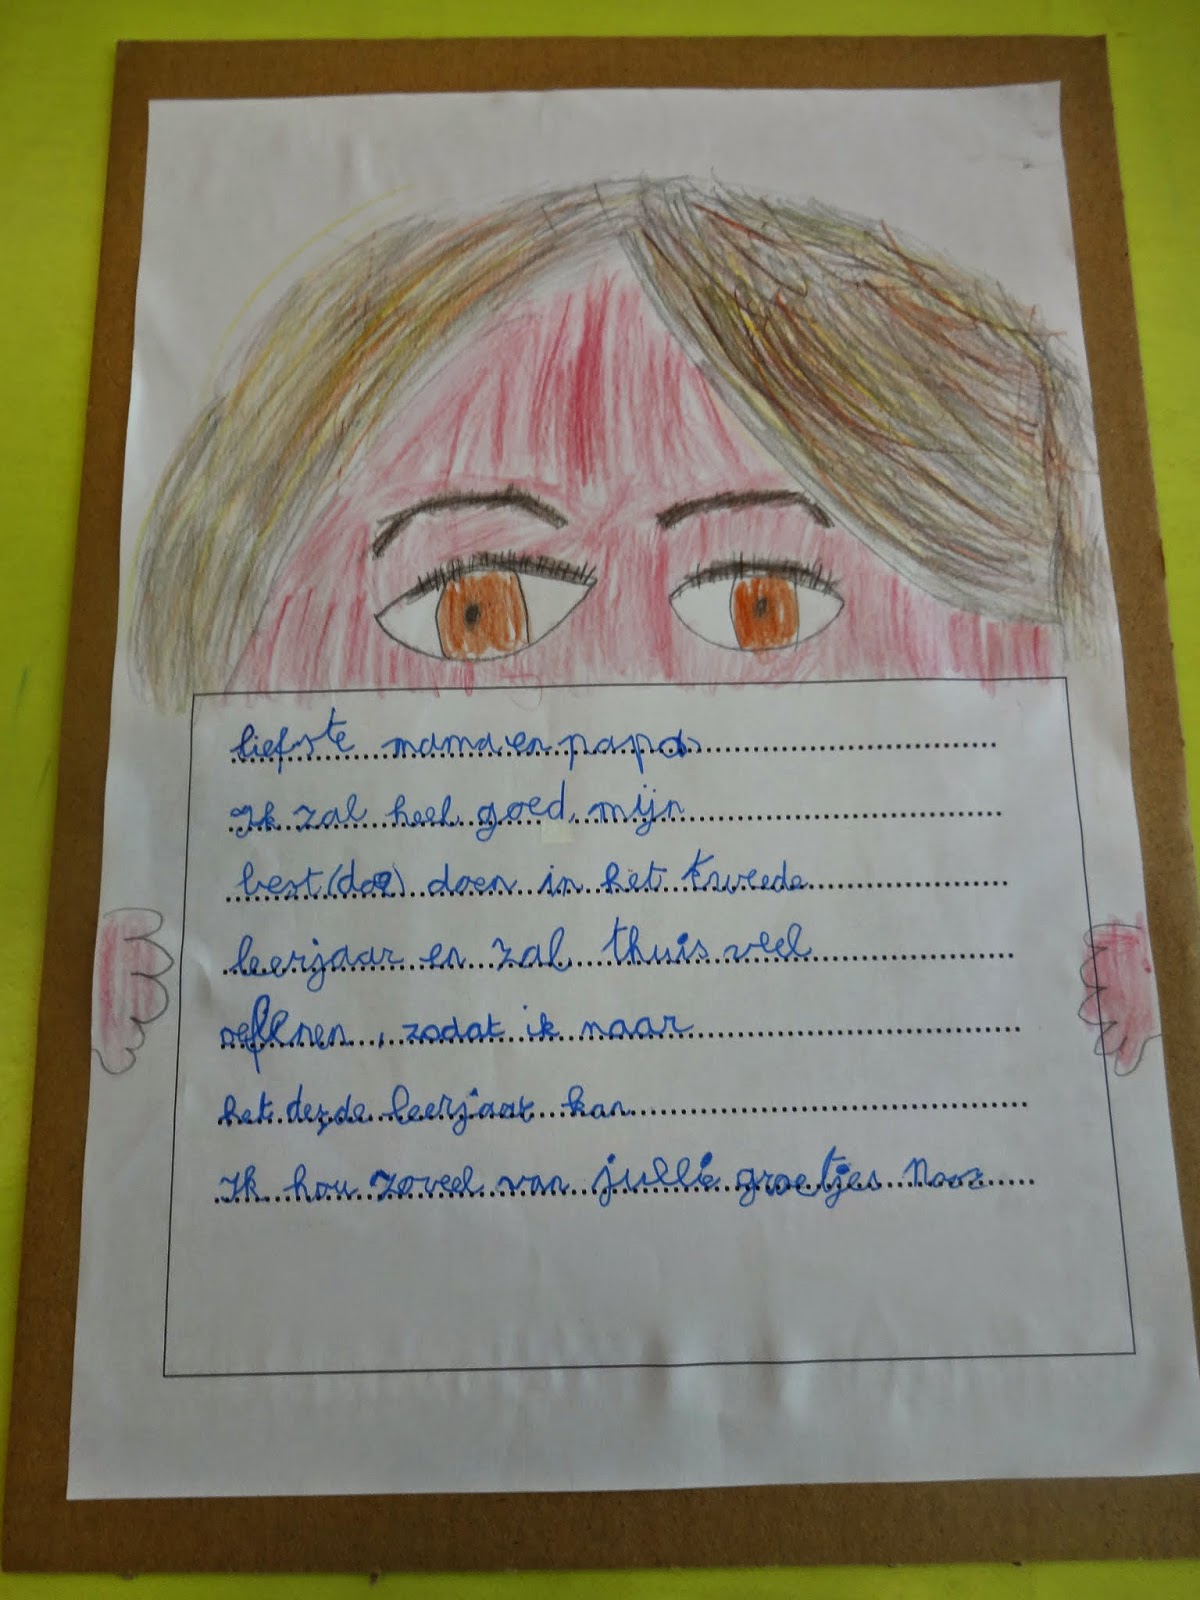 liefste mama en papa
Ik zal heel goed mijn
best doen in het tweede
leerjaar en zal thuis veel
oefenen, zodat ik naar
het derde leerjaar kan
Ik hou zoveel van jullie groetjes Noor